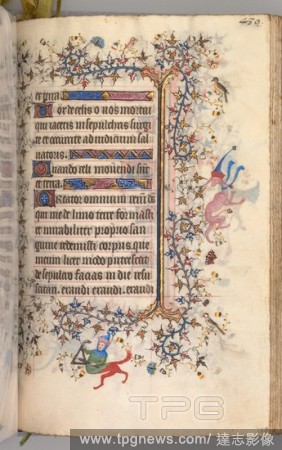 450
et tria.
Vox de celis o uos mortui
qui iacetis in sepulchris surgi
te et occurite ad iudicium sal
uatoris.
Quando celi mouendi sūt
et terra.
Creator omnium rerum de
us qui me de limo terre formasti
et mirabiliter proprio san
guine redemisti corpus que
meum licet modo putrescat
de sepulcro facias in die resu
scitari. exaudi exaudi. exaudi
TPG
www.tpgnews.com/ 達志影像